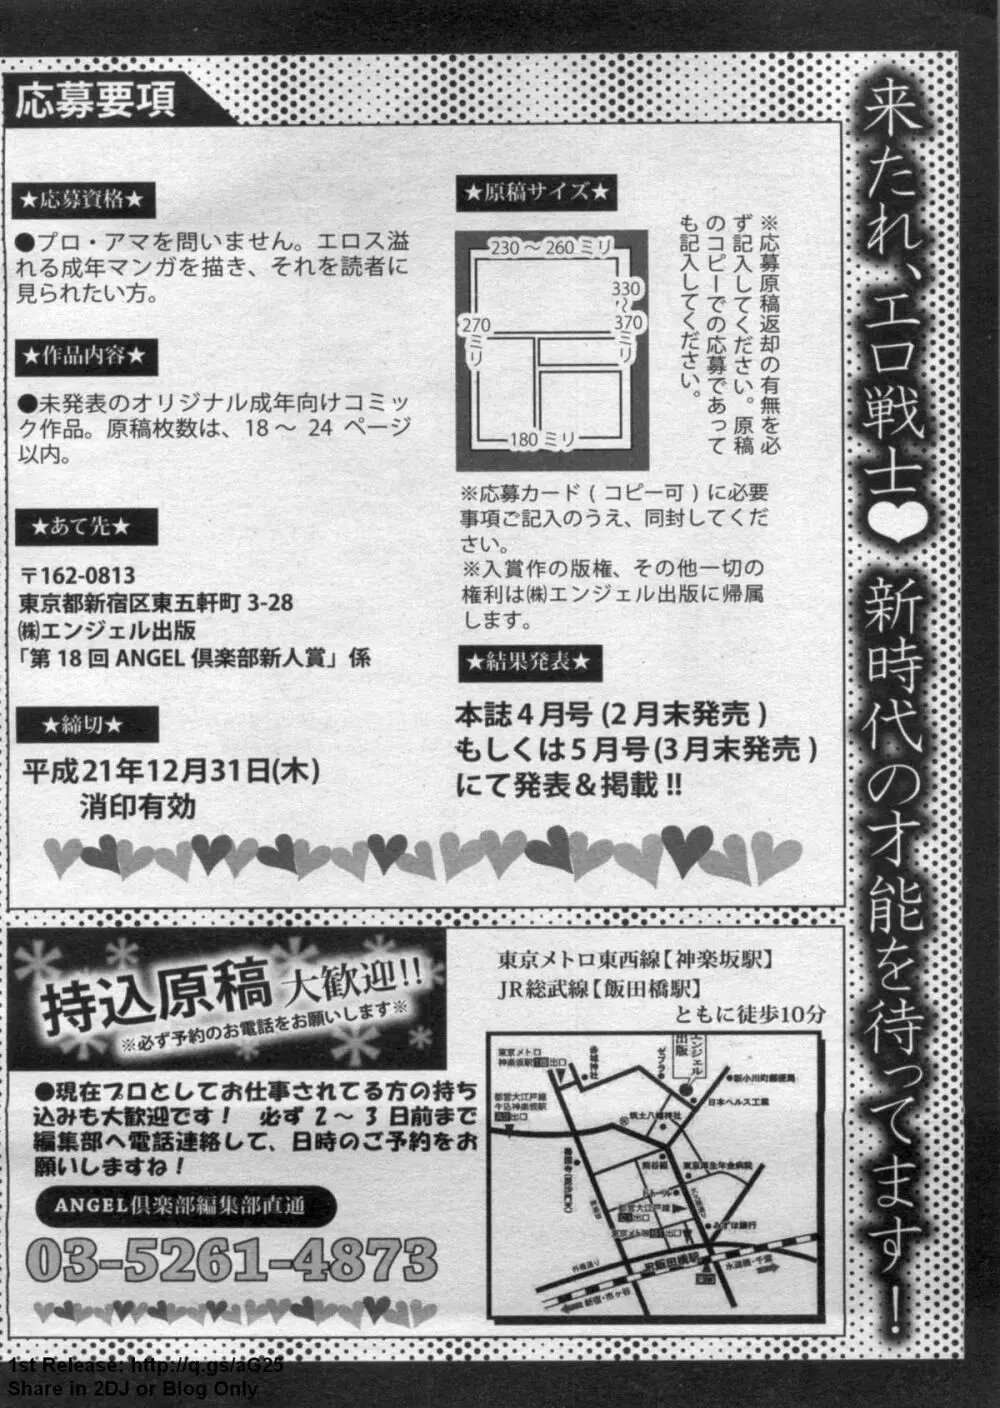 来たれ、エロ戦士♥新時代の才能を待ってます!
応募要項
★応募資格★
●プロ・アマを問いません。エロス溢
れる成年マンガを描き、それを読者に
見られたい方。
★作品内容★
●未発表のオリジナル成年向けコミッ
ク作品。原稿枚数は、18～24ページ
以内。
★あて先★
〒162-0813
東京都新宿区東五軒町3-28
㈱エンジェル出版
「第18回ANGEL倶楽部新人賞」係
★締切★
平成21年12月31日(木)
消印有効
★原稿サイズ★
230～260ミリ
330～370ミリ
270ミリ
180ミリ
※応募原稿返却の有無を必
ず記入してください。原稿
のコピーでの応募であって
も記入してください。
※応募カード(コピー可)に必要
事項ご記入のうえ、同封してくだ
さい。
※入賞作の版権、その他一切の
権利は㈱エンジェル出版に帰属
します。
★結果発表★
本誌4月号(2月末発売)
もしくは5月号(3月末発売)
にて発表&掲載!!
持込原稿大歓迎!!
※必ず予約のお電話をお願いします※
●現在プロとしてお仕事されてる方の持ち
込みも大歓迎です! 必ず2～3日前まで
編集部へ電話連絡して、日時のご予約をお
願いしますね!
ANGEL倶楽部編集部直通
03-5261-4873
東京メトロ東西線【神楽坂駅】
JR総武線【飯田橋駅】
ともに徒歩10分
東京メトロ
神楽坂駅1番出口
赤城神社
ゼブラ
エンジェル出版
新小川町郵便局
日本ヘルス工業
都営大江戸線
牛込神楽坂駅
A3出口
筑土八幡神社
熊谷組
東京厚生年金病院
善国寺(毘沙門天)
ドトール
都営大江戸線
C1出口
東京メトロB1出口
みずほ銀行
外堀通り
JR飯田橋駅
水道橋・千葉
新宿・市ヶ谷
1st Release: http://q.gs/aG25
Share in 2DJ or Blog Only